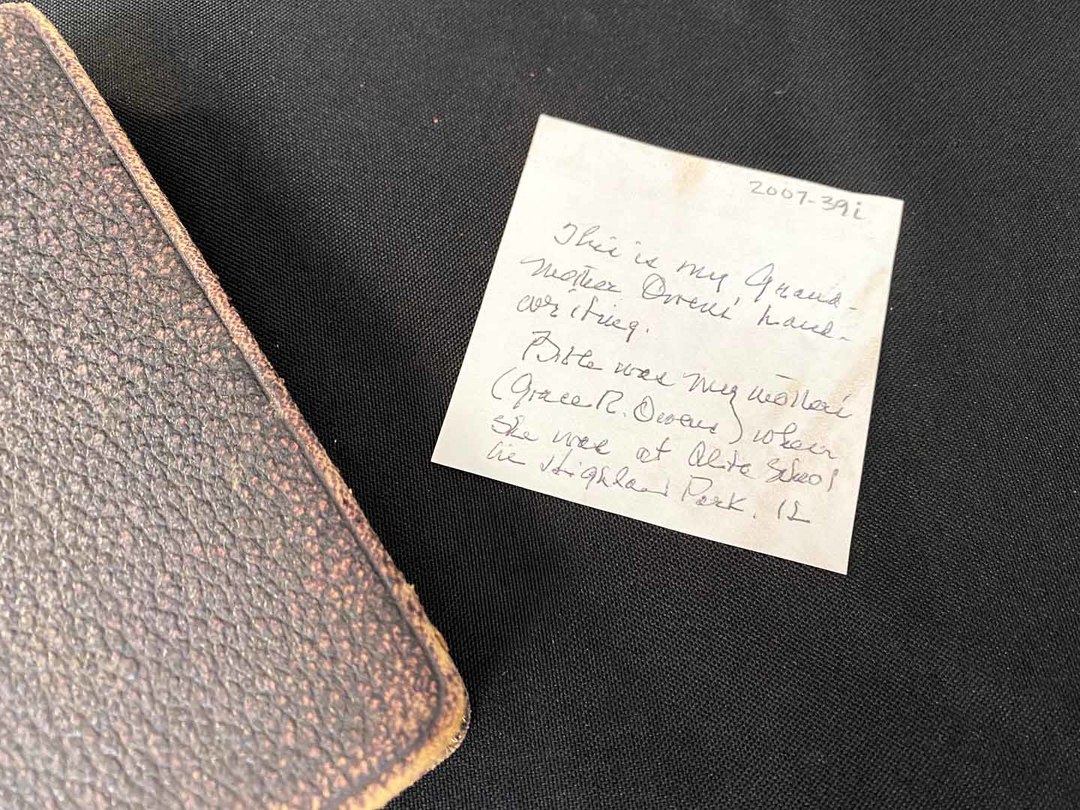 2007-39i
This is my Grand-
mother Owens' hand-
writing.
Bible was my mother's
(Grace R. Owens) when
she was at School
in Highland Park, IL